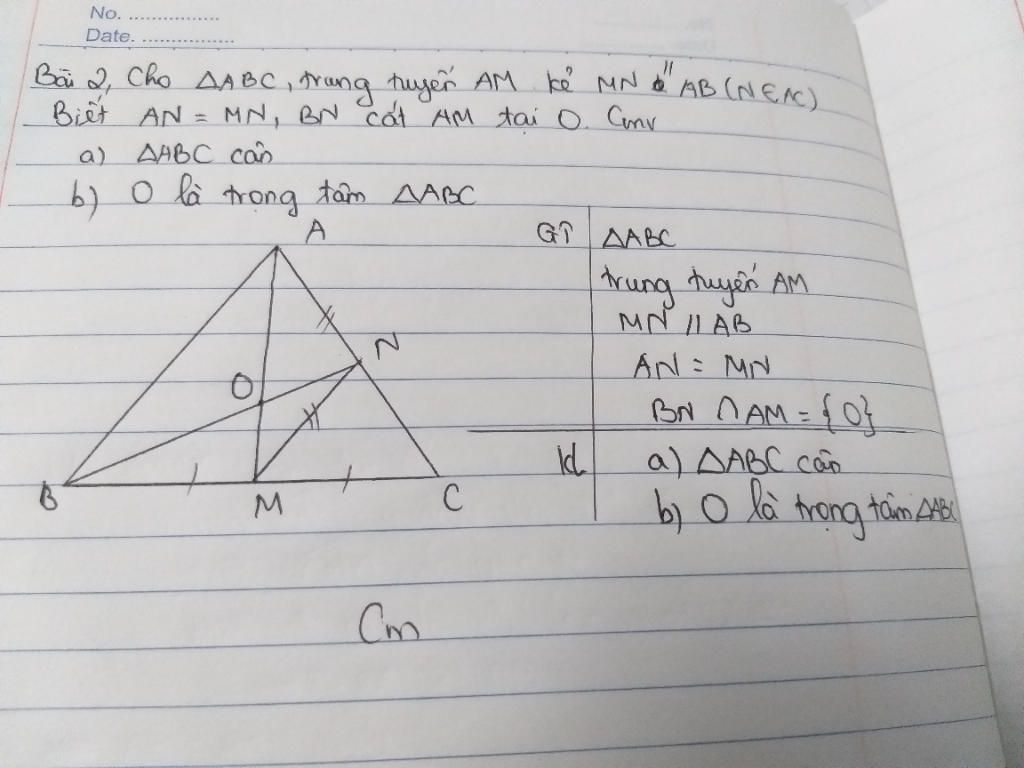 No. ................
Date. ................
Bài 2, Cho ΔABC, trung tuyến AM kẻ MN // AB (N ∈ AC)
Biết AN = MN, BN cắt AM tại O. Cmr
a) ΔABC cân
b) O là trọng tâm ΔABC
A
N
O
B
M
C
GT
ΔABC
trung tuyến AM
MN // AB
AN = MN
BN ∩ AM = {O}
kl
a) ΔABC cân
b) O là trọng tâm ΔABC
Cm